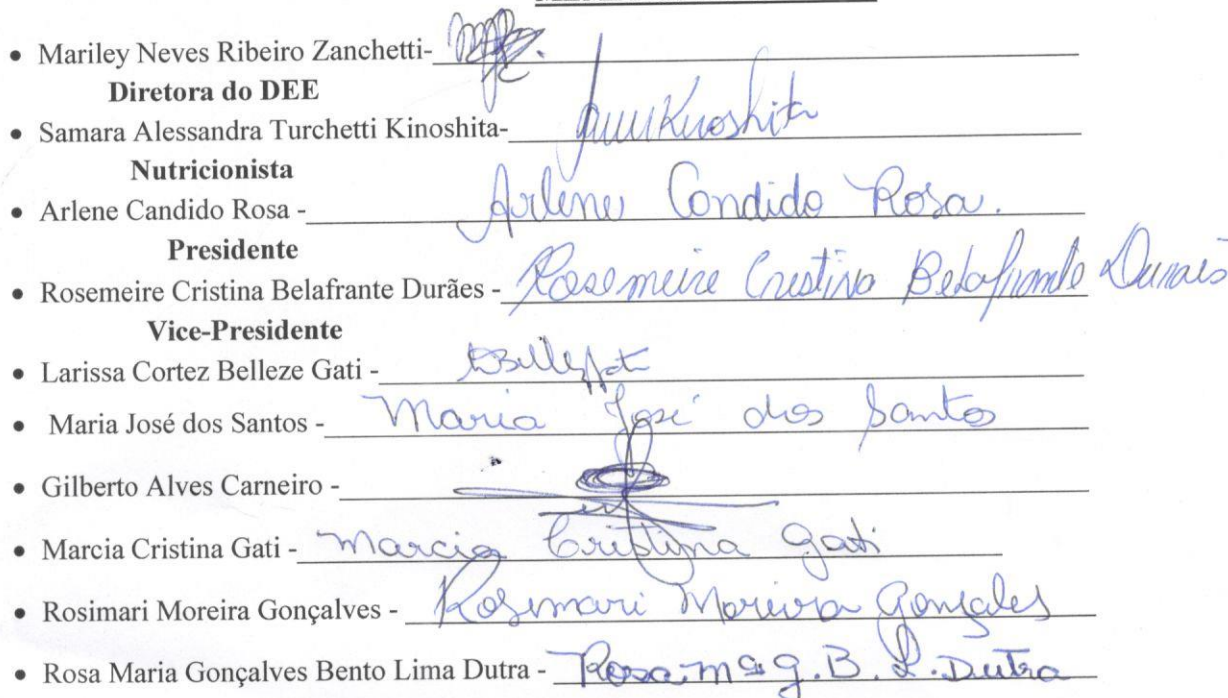 • Mariley Neves Ribeiro Zanchetti-
Diretora do DEE
• Samara Alessandra Turchetti Kinoshita- Kinoshita
Nutricionista
• Arlene Candido Rosa - Arlene Candido Rosa.
Presidente
• Rosemeire Cristina Belafrante Durães - Rosemeire Cristina Belafrante Durães
Vice-Presidente
• Larissa Cortez Belleze Gati -
• Maria José dos Santos - Maria José dos Santos
• Gilberto Alves Carneiro -
• Marcia Cristina Gati - Marcia Cristina Gati
• Rosimari Moreira Gonçalves - Rosimari Moreira Gonsales
• Rosa Maria Gonçalves Bento Lima Dutra - Rosa Mª G. B. L. Dutra